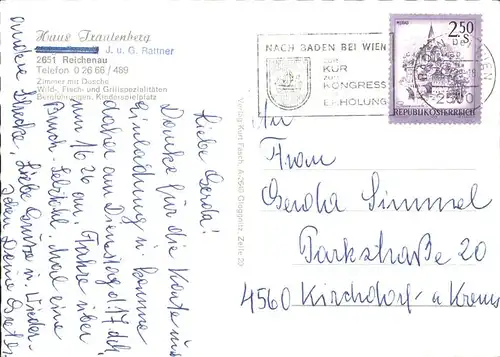 Haus Trautenberg
J. u. G. Rattner
2651 Reichenau
Telefon 0 26 66 / 489
Zimmer mit Dusche
Wild-, Fisch- und Grillspezialitäten
Kinderspielplatz
NACH BADEN BEI WIEN
ZUR
KUR
ZUM
KONGRESS
ZUR
ERHOLUNG
2500
2.50
S
REPUBLIK ÖSTERREICH
An
Frau
Gerda Simmel
Parkstraße 20
4560 Kirchdorf a Krems
Verlag Kurt Fasch, A-2640 Gloggnitz, Zeile 22
Liebe Gerda!
Danke für die Karte und
Einladung u. komme
daher am Dienstag d. 17. d.
um 16 an. Fahre über
Bruck
eine
andere Strecke. Liebe Grüße u. Wieder-
sehen Deine Grete